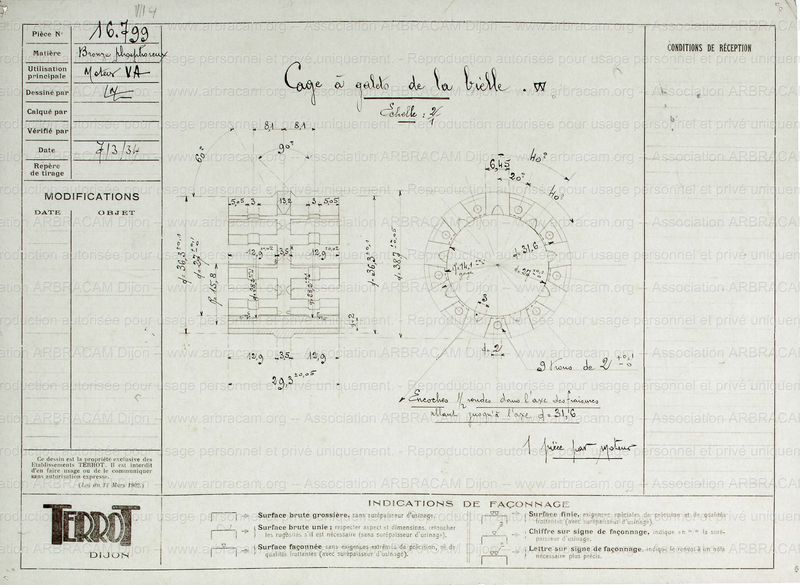 Pièce N° 16.799
Matière Bronze phosphoreux
Utilisation principale Moteur VA
Dessiné par
Calqué par
Vérifié par
Date 7/3/34
Repère de tirage
MODIFICATIONS
DATE OBJET
Cage à galets de la bielle.
Echelle : 2/1
CONDITIONS DE RÉCEPTION
8,1 8,1
90°
60°
5,05 3 13,2 3 5,05
12,9 ±0,02 3,5 12,9 ±0,02
12,9 3,5 12,9
29,3 ±0,05
6,45
20°
40°
40°
d=31,6
d=2
9 trous de 2 +0,1 -0
Encoches 1/2 rondes dans l'axe des fraisures
allant jusqu'à l'axe d=31,6
1 pièce par moteur
Ce dessin est la propriété exclusive des
Etablissements TERROT. Il est interdit
d'en faire usage ou de le communiquer
sans autorisation expresse.
(Loi du 11 Mars 1902.)
TERROT
DIJON
INDICATIONS DE FAÇONNAGE
Surface brute grossière, sans surépaisseur d'usinage.
Surface brute unie; respecter aspect et dimensions, retoucher
les rugosités s'il est nécessaire (sans surépaisseur d'usinage).
Surface façonnée sans exigences extrêmes de précision, ni de
qualités frottantes (avec surépaisseur d'usinage).
Surface finie, exigences spéciales de précision et de qualités
frottantes (avec surépaisseur d'usinage).
Chiffre sur signe de façonnage, indique en m/m la surépaisseur d'usinage.
Lettre sur signe de façonnage, indique le renvoi à un nota
nécessaire plus précis.
www.arbracam.org – Association ARBRACAM Dijon – Reproduction autorisée pour usage personnel et privé uniquement.